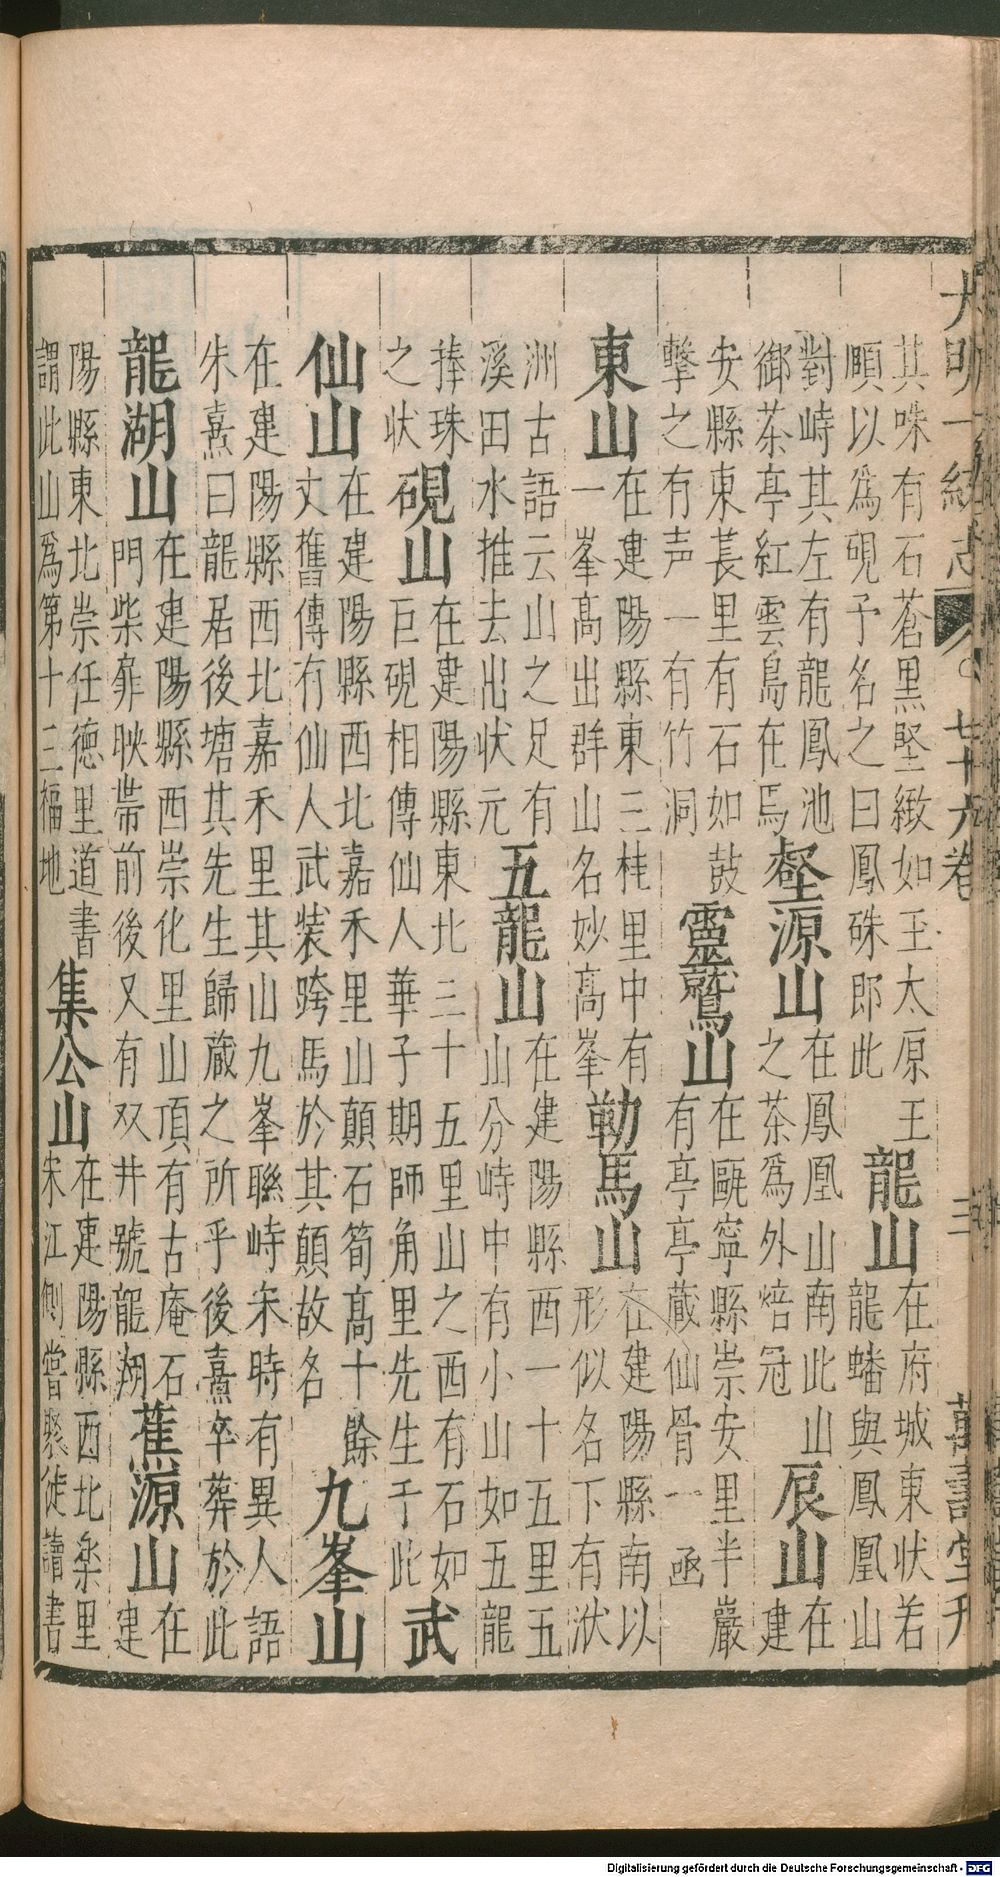 大明一統志 七十六卷 三 萬壽堂刋
其味有石蒼黑堅緻如玉太原王
順以爲硯予名之曰鳳硃郎此
龍山
在府城東状若
龍蟠與鳳凰山
對峙其左有龍鳳池
御茶亭紅雲島在焉
壑源山
在鳳凰山南此山
之茶爲外焙冠
辰山
在
建
安縣東萇里有石如鼓
擊之有声一有竹洞
靈鷲山
在甌寧縣崇安里半巖
有亭亭藏仙骨一函
東山
在建陽縣東三桂里中有
一峯髙出群山名妙髙峯
勒馬山
在建陽縣南以
形似名下有洑
洲古語云山之足有
溪田水推去出状元
五龍山
在建陽縣西一十五里五
山分峙中有小山如五龍
捧珠
之状
硯山
在建陽縣東北三十五里山之西有石如
巨硯相傳仙人華子期師角里先生于此
武
仙山
在建陽縣西北嘉禾里山顛石筍髙十餘
丈舊傳有仙人武装跨馬於其顛故名
九峯山
在建陽縣西北嘉禾里其山九峯聯峙宋時有異人語
朱熹曰龍居後塘其先生歸蔵之所乎後熹卒葬於此
龍湖山
在建陽縣西崇化里山頂有古庵石
門柴扉映帶前後又有双井號龍湖
蕉源山
在
建
陽縣東北崇任徳里道書
謂此山爲第十三福地
集公山
在建陽縣西北樂里
宋江側嘗聚徒讀書
Digitalisierung gefördert durch die Deutsche Forschungsgemeinschaft - DFG